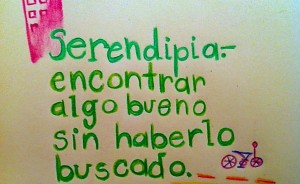 Serendipia.-
encontrar
algo bueno
sin haberlo
buscado.